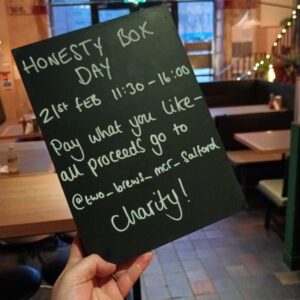 HONESTY BOX
DAY
21st FEB 11:30-16:00
Pay what you like-
all proceeds go to
@two_brews_mcr_salford
charity!